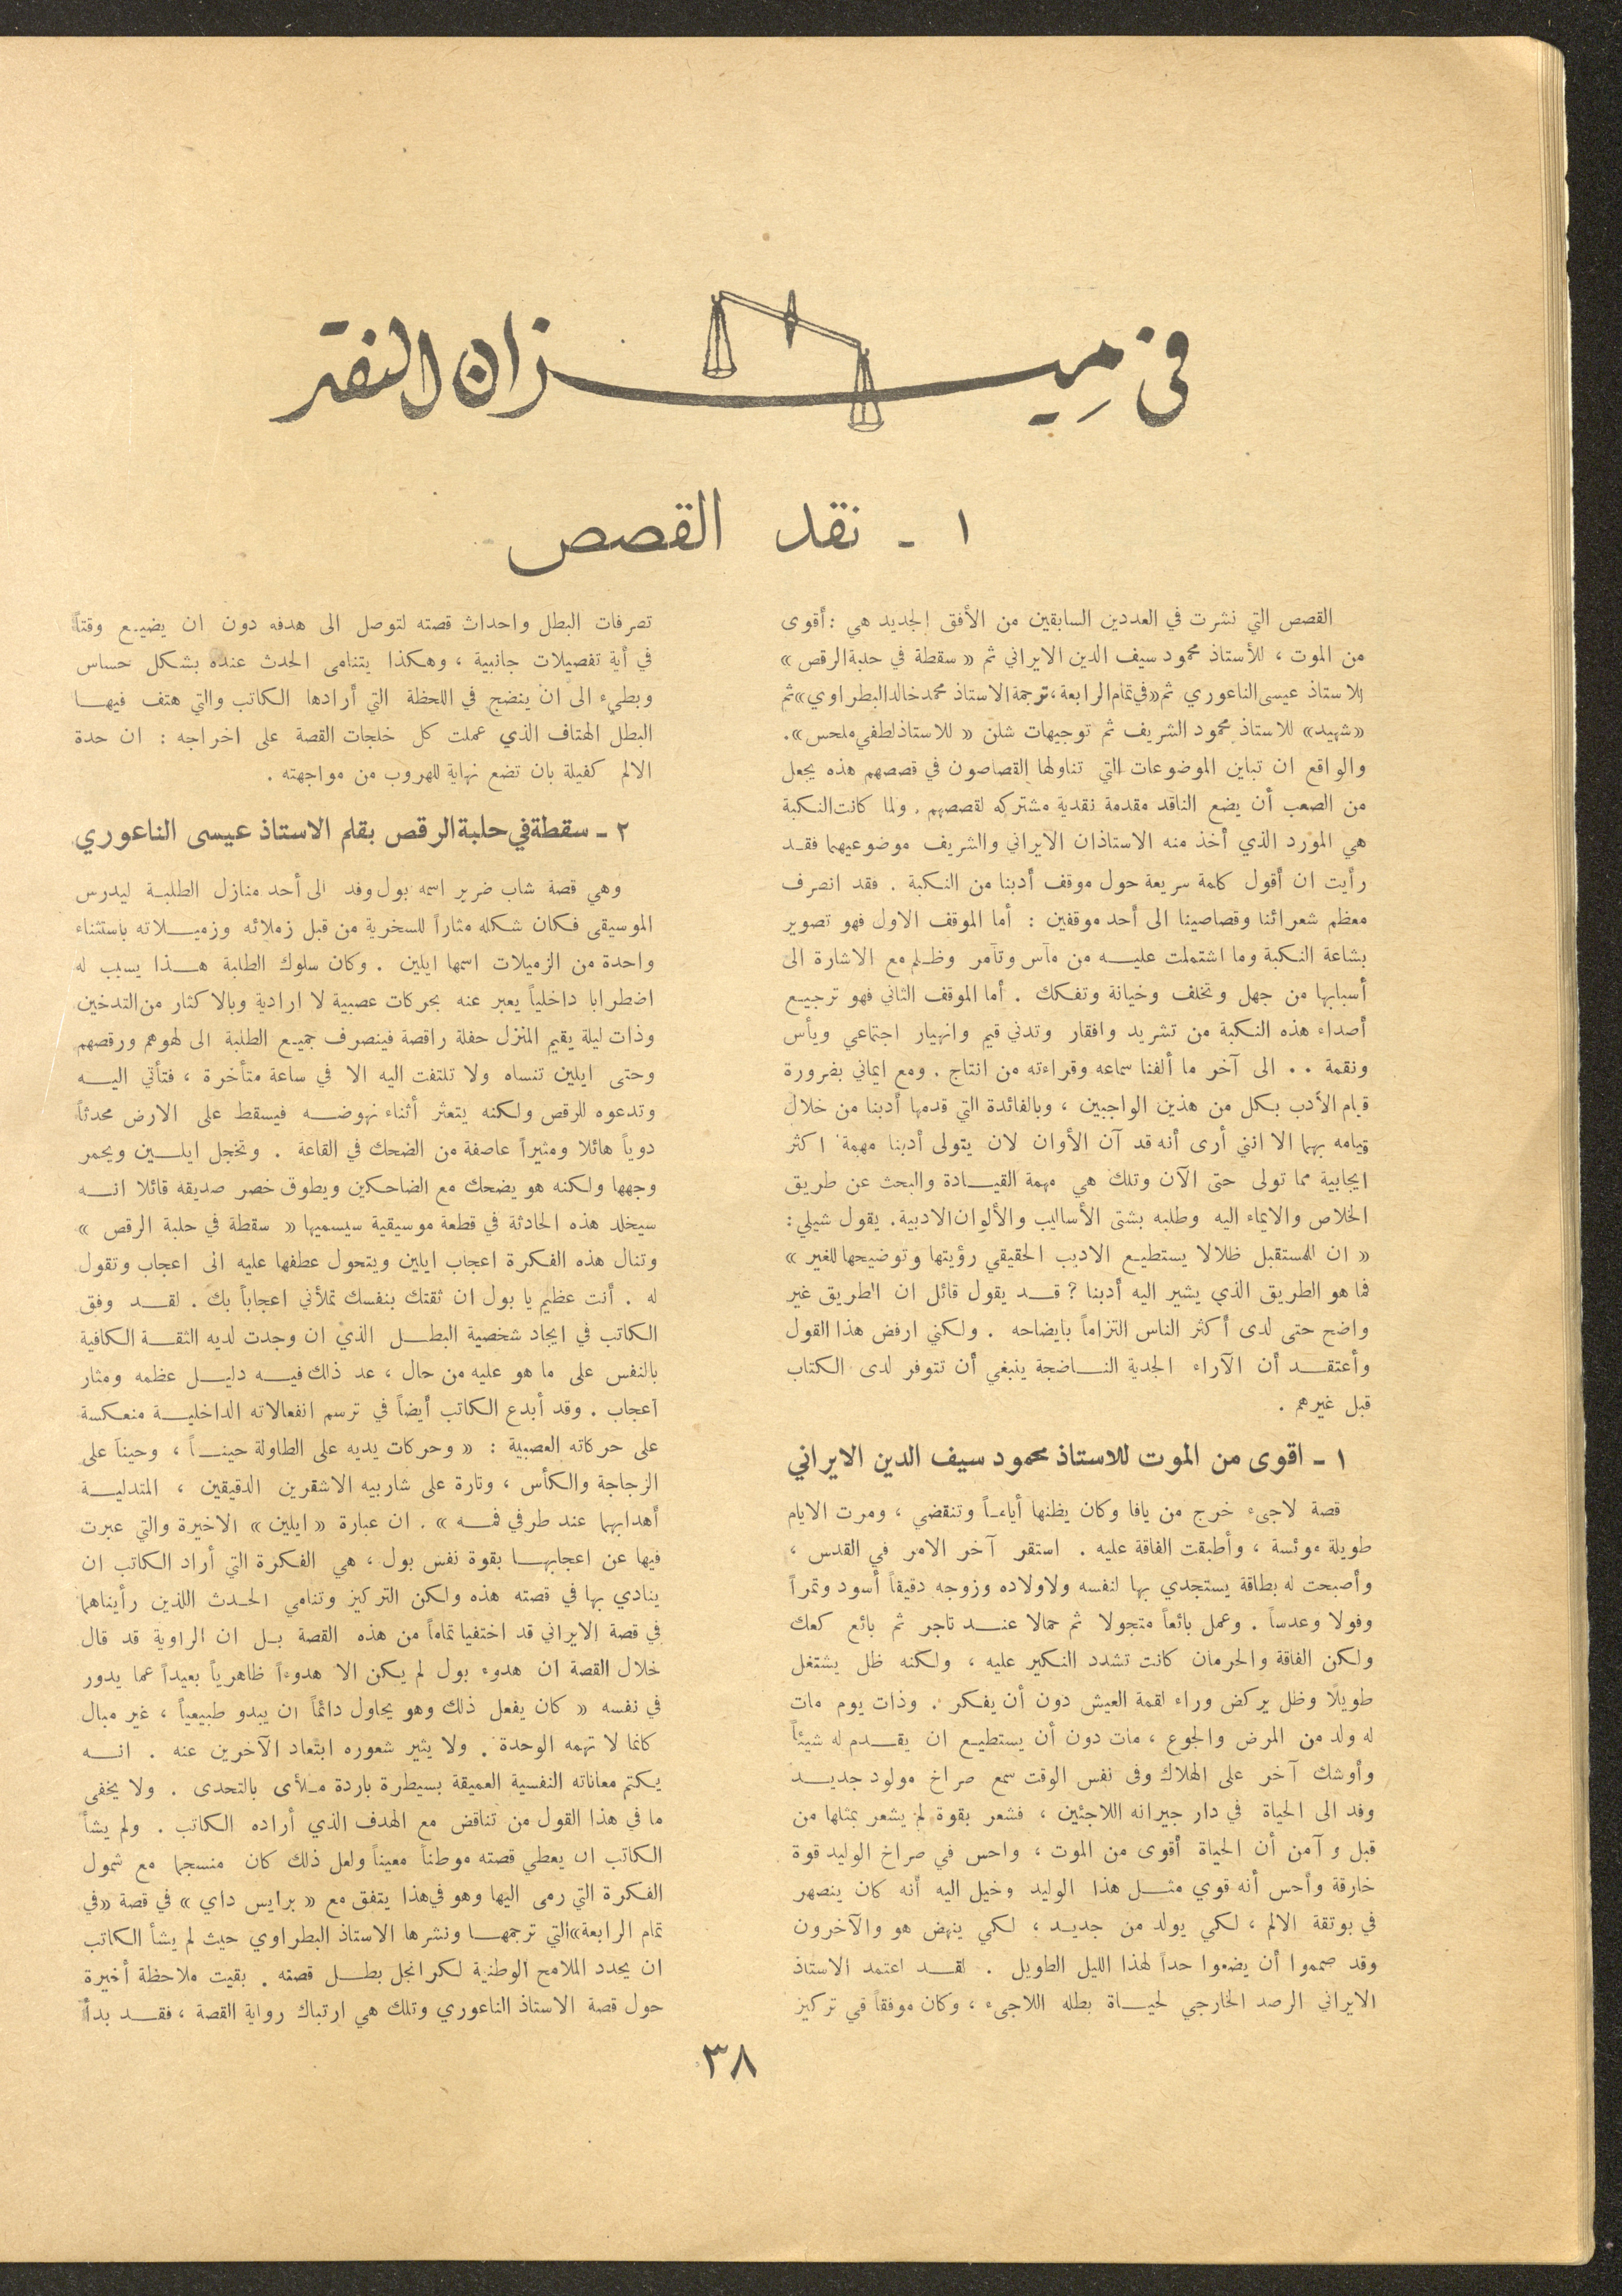 في ميزان النقد
١ - نقد القصص
القصص التي نشرت في العددين السابقين من الأفق الجديد هي : أقوى
من الموت ، للأستاذ محمود سيف الدين الايراني ثم « سقطة في حلبة الرقص »
للاستاذ عيسى الناعوري ثم «في تمام الرابعة، ترجمة الاستاذ محمد خالد البطراوي» ثم
«شهيد» للاستاذ محمود الشريف ثم توجيهات شلن « للاستاذ لطفي ملحس».
والواقع ان تباين الموضوعات التي تناولها القصاصون في قصصهم هذه يجعل
من الصعب أن يضع الناقد مقدمة نقدية مشتركه لقصصهم . ولما كانت النكبة
هي المورد الذي أخذ منه الاستاذان الايراني والشريف موضوعيهما فقد
رأيت ان أقول كلمة سريعة حول موقف أدبنا من النكبة . فقد انصرف
معظم شعرائنا وقصاصينا الى أحد موقفين : أما الموقف الاول فهو تصوير
بشاعة النكبة وما اشتملت عليه من مآس وتآمر وظلم مع الاشارة الى
أسبابها من جهل وتخلف وخيانة وتفكك . أما الموقف الثاني فهو ترجيع
أصداء هذه النكبة من تشريد وافقار وتدني قيم وانهيار اجتماعي ويأس
ونقمة .. الى آخر ما ألفنا سماعه وقراءته من انتاج . ومع ايماني بضرورة
قيام الأدب بكل من هذين الواجبين ، وبالفائدة التي قدمها أدبنا من خلال
قيامه بهما الا انني أرى أنه قد آن الأوان لان يتولى أدبنا مهمة اكثر
ايجابية مما تولى حتى الآن وتلك هي مهمة القيادة والبحث عن طريق
الخلاص والايماء اليه وطلبه بشتى الأساليب والألوان الادبية . يقول شيلي :
« ان للمستقبل ظلالا يستطيع الاديب الحقيقي رؤيتها وتوضيحها للغير »
فما هو الطريق الذي يشير اليه أدبنا ? قد يقول قائل ان الطريق غير
واضح حتى لدى أكثر الناس التزاماً بايضاحه . ولكني ارفض هذا القول
وأعتقد أن الآراء الجدية الناضجة ينبغي أن تتوفر لدى الكتاب
قبل غيرهم .
١ - اقوى من الموت للاستاذ محمود سيف الدين الايراني
قصة لاجىء خرج من يافا وكان يظنها أياماً وتنقضي ، ومرت الايام
طويلة موئسة ، وأطبقت الفاقة عليه . استقر آخر الامر في القدس ،
وأصبحت له بطاقة يستجدي بها لنفسه ولاولاده وزوجه دقيقاً أسود وتمراً
وفولا وعدساً . وعمل بائعاً متجولا ثم حمالا عند تاجر ثم بائع كعك
ولكن الفاقة والحرمان كانت تشدد النكير عليه ، ولكنه ظل يشتغل
طويلا وظل يركض وراء لقمة العيش دون أن يفكر . وذات يوم مات
له ولد من المرض والجوع ، مات دون أن يستطيع ان يقدم له شيئاً
وأوشك آخر على الهلاك وفى نفس الوقت سمع صراخ مولود جديد
وفد الى الحياة في دار جيرانه اللاجئين ، فشعر بقوة لم يشعر بمثلها من
قبل و آمن أن الحياة أقوى من الموت ، واحس في صراخ الوليد قوة
خارقة وأحس أنه قوي مثل هذا الوليد وخيل اليه أنه كان ينصهر
في بوتقة الالم ، لكي يولد من جديد ، لكي ينهض هو والآخرون
وقد صمموا أن يضعوا حداً لهذا الليل الطويل . لقد اعتمد الاستاذ
الايراني الرصد الخارجي لحياة بطله اللاجىء ، وكان موفقاً في تركيز
تصرفات البطل واحداث قصته لتوصل الى هدفه دون ان يضيع وقتاً
في أية تفصيلات جانبية ، وهكذا يتنامى الحدث عنده بشكل حساس
وبطيء الى ان ينضج في اللحظة التي أرادها الكاتب والتي هتف فيها
البطل الهتاف الذي عملت كل خلجات القصة على اخراجه : ان حدة
الالم كفيلة بان تضع نهاية للهروب من مواجهته .
٢ - سقطة في حلبة الرقص بقلم الاستاذ عيسى الناعوري
وهي قصة شاب ضرير اسمه بول وفد الى أحد منازل الطلبة ليدرس
الموسيقى فكان شكله مثاراً للسخرية من قبل زملائه وزميلاته باستثناء
واحدة من الزميلات اسمها ايلين . وكان سلوك الطلبة هذا يسبب له
اضطرابا داخلياً يعبر عنه بحركات عصبية لا ارادية وبالاكثار من التدخين
وذات ليلة يقيم المنزل حفلة راقصة فينصرف جميع الطلبة الى لهوهم ورقصهم
وحتى ايلين تنساه ولا تلتفت اليه الا في ساعة متأخرة ، فتأتي اليه
وتدعوه للرقص ولكنه يتعثر أثناء نهوضه فيسقط على الارض محدثاً
دوياً هائلا ومثيراً عاصفة من الضحك في القاعة . وتخجل ايلين ويحمر
وجهها ولكنه هو يضحك مع الضاحكين ويطوق خصر صديقه قائلا انه
سيخلد هذه الحادثة في قطعة موسيقية سيسميها « سقطة في حلبة الرقص »
وتنال هذه الفكرة اعجاب ايلين ويتحول عطفها عليه الى اعجاب وتقول
له . أنت عظيم يا بول ان ثقتك بنفسك تملأني اعجاباً بك . لقد وفق
الكاتب في ايجاد شخصية البطل الذي ان وجدت لديه الثقة الكافية
بالنفس على ما هو عليه من حال ، عد ذلك فيه دليل عظمه ومثار
اعجاب . وقد أبدع الكاتب أيضاً في ترسم انفعالاته الداخلية منعكسة
على حركاته العصبية : « وحركات يديه على الطاولة حيناً ، وحيناً على
الزجاجة والكأس ، وتارة على شاربيه الاشقرين الدقيقين ، المتدلية
أهدابهما عند طرفي فمه » . ان عبارة « ايلين » الاخيرة والتي عبرت
فيها عن اعجابها بقوة نفس بول ، هي الفكرة التي أراد الكاتب ان
ينادي بها في قصته هذه ولكن التركيز وتنامي الحدث اللذين رأيناهما
في قصة الايراني قد اختفيا تماماً من هذه القصة بل ان الراوية قد قال
خلال القصة ان هدوء بول لم يكن الا هدوءاً ظاهرياً بعيداً عما يدور
في نفسه « كان يفعل ذلك وهو يحاول دائماً ان يبدو طبيعياً ، غير مبال
كانما لا تهمه الوحدة . ولا يثير شعوره ابتعاد الآخرين عنه . انه
يكتم معاناته النفسية العميقة بسيطرة باردة ملأى بالتحدى . ولا يخفى
ما في هذا القول من تناقض مع الهدف الذي أراده الكاتب . ولم يشأ
الكاتب ان يعطي قصته موطناً معيناً ولعل ذلك كان منسجما مع شمول
الفكرة التي رمى اليها وهو في هذا يتفق مع « برايس داي » في قصة «في
تمام الرابعة» التي ترجمها ونشرها الاستاذ البطراوي حيث لم يشأ الكاتب
ان يحدد الملامح الوطنية لكرانجل بطل قصته . بقيت ملاحظة أخيرة
حول قصة الاستاذ الناعوري وتلك هي ارتباك رواية القصة ، فقد بدأ
٣٨